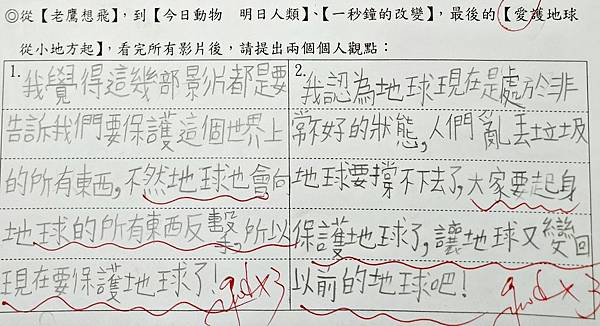 ◎從【老鷹想飛】,到【今日動物　明日人類】、【一秒鐘的改變】,最後的【愛護地球
從小地方起】,看完所有影片後,請提出兩個個人觀點:
1.我覺得這幾部影片都是要
告訴我們要保護這個世界上
的所有東西,不然地球也會向
地球的所有東西反擊,所以
現在要保護地球了!
good×3
2.我認為地球現在是處於非
常不好的狀態,人們亂丟垃圾
地球要撐不下去了,大家要起身
保護地球了,讓地球又變回
以前的地球吧!
good×3